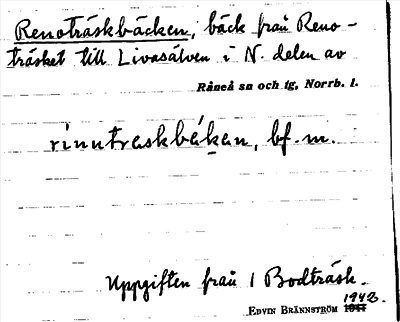 Renoträskbäcken, bäck från Reno-
träsket till Livasälven i N. delen av
Råneå sn och tg, Norrb. l.
rinutraskbékan, bf. m.
Uppgiften från 1 Bodträsk.
1942.
EDVIN BRÄNNSTRÖM